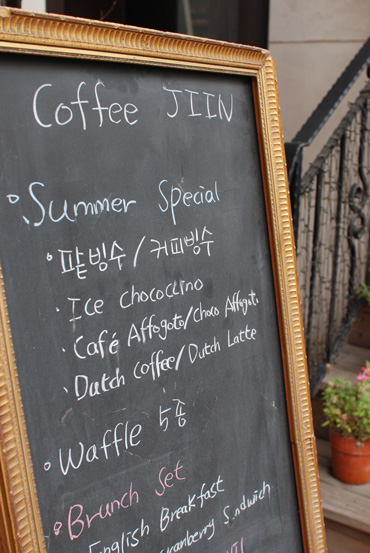 Coffee JIIN
Summer Special
팥빙수/커피빙수
Ice chococcino
Café Affogato/Choco Affogato
Dutch coffee/Dutch Latte
Waffle 5종
Brunch Set
English Breakfast
Cranberry Sandwich